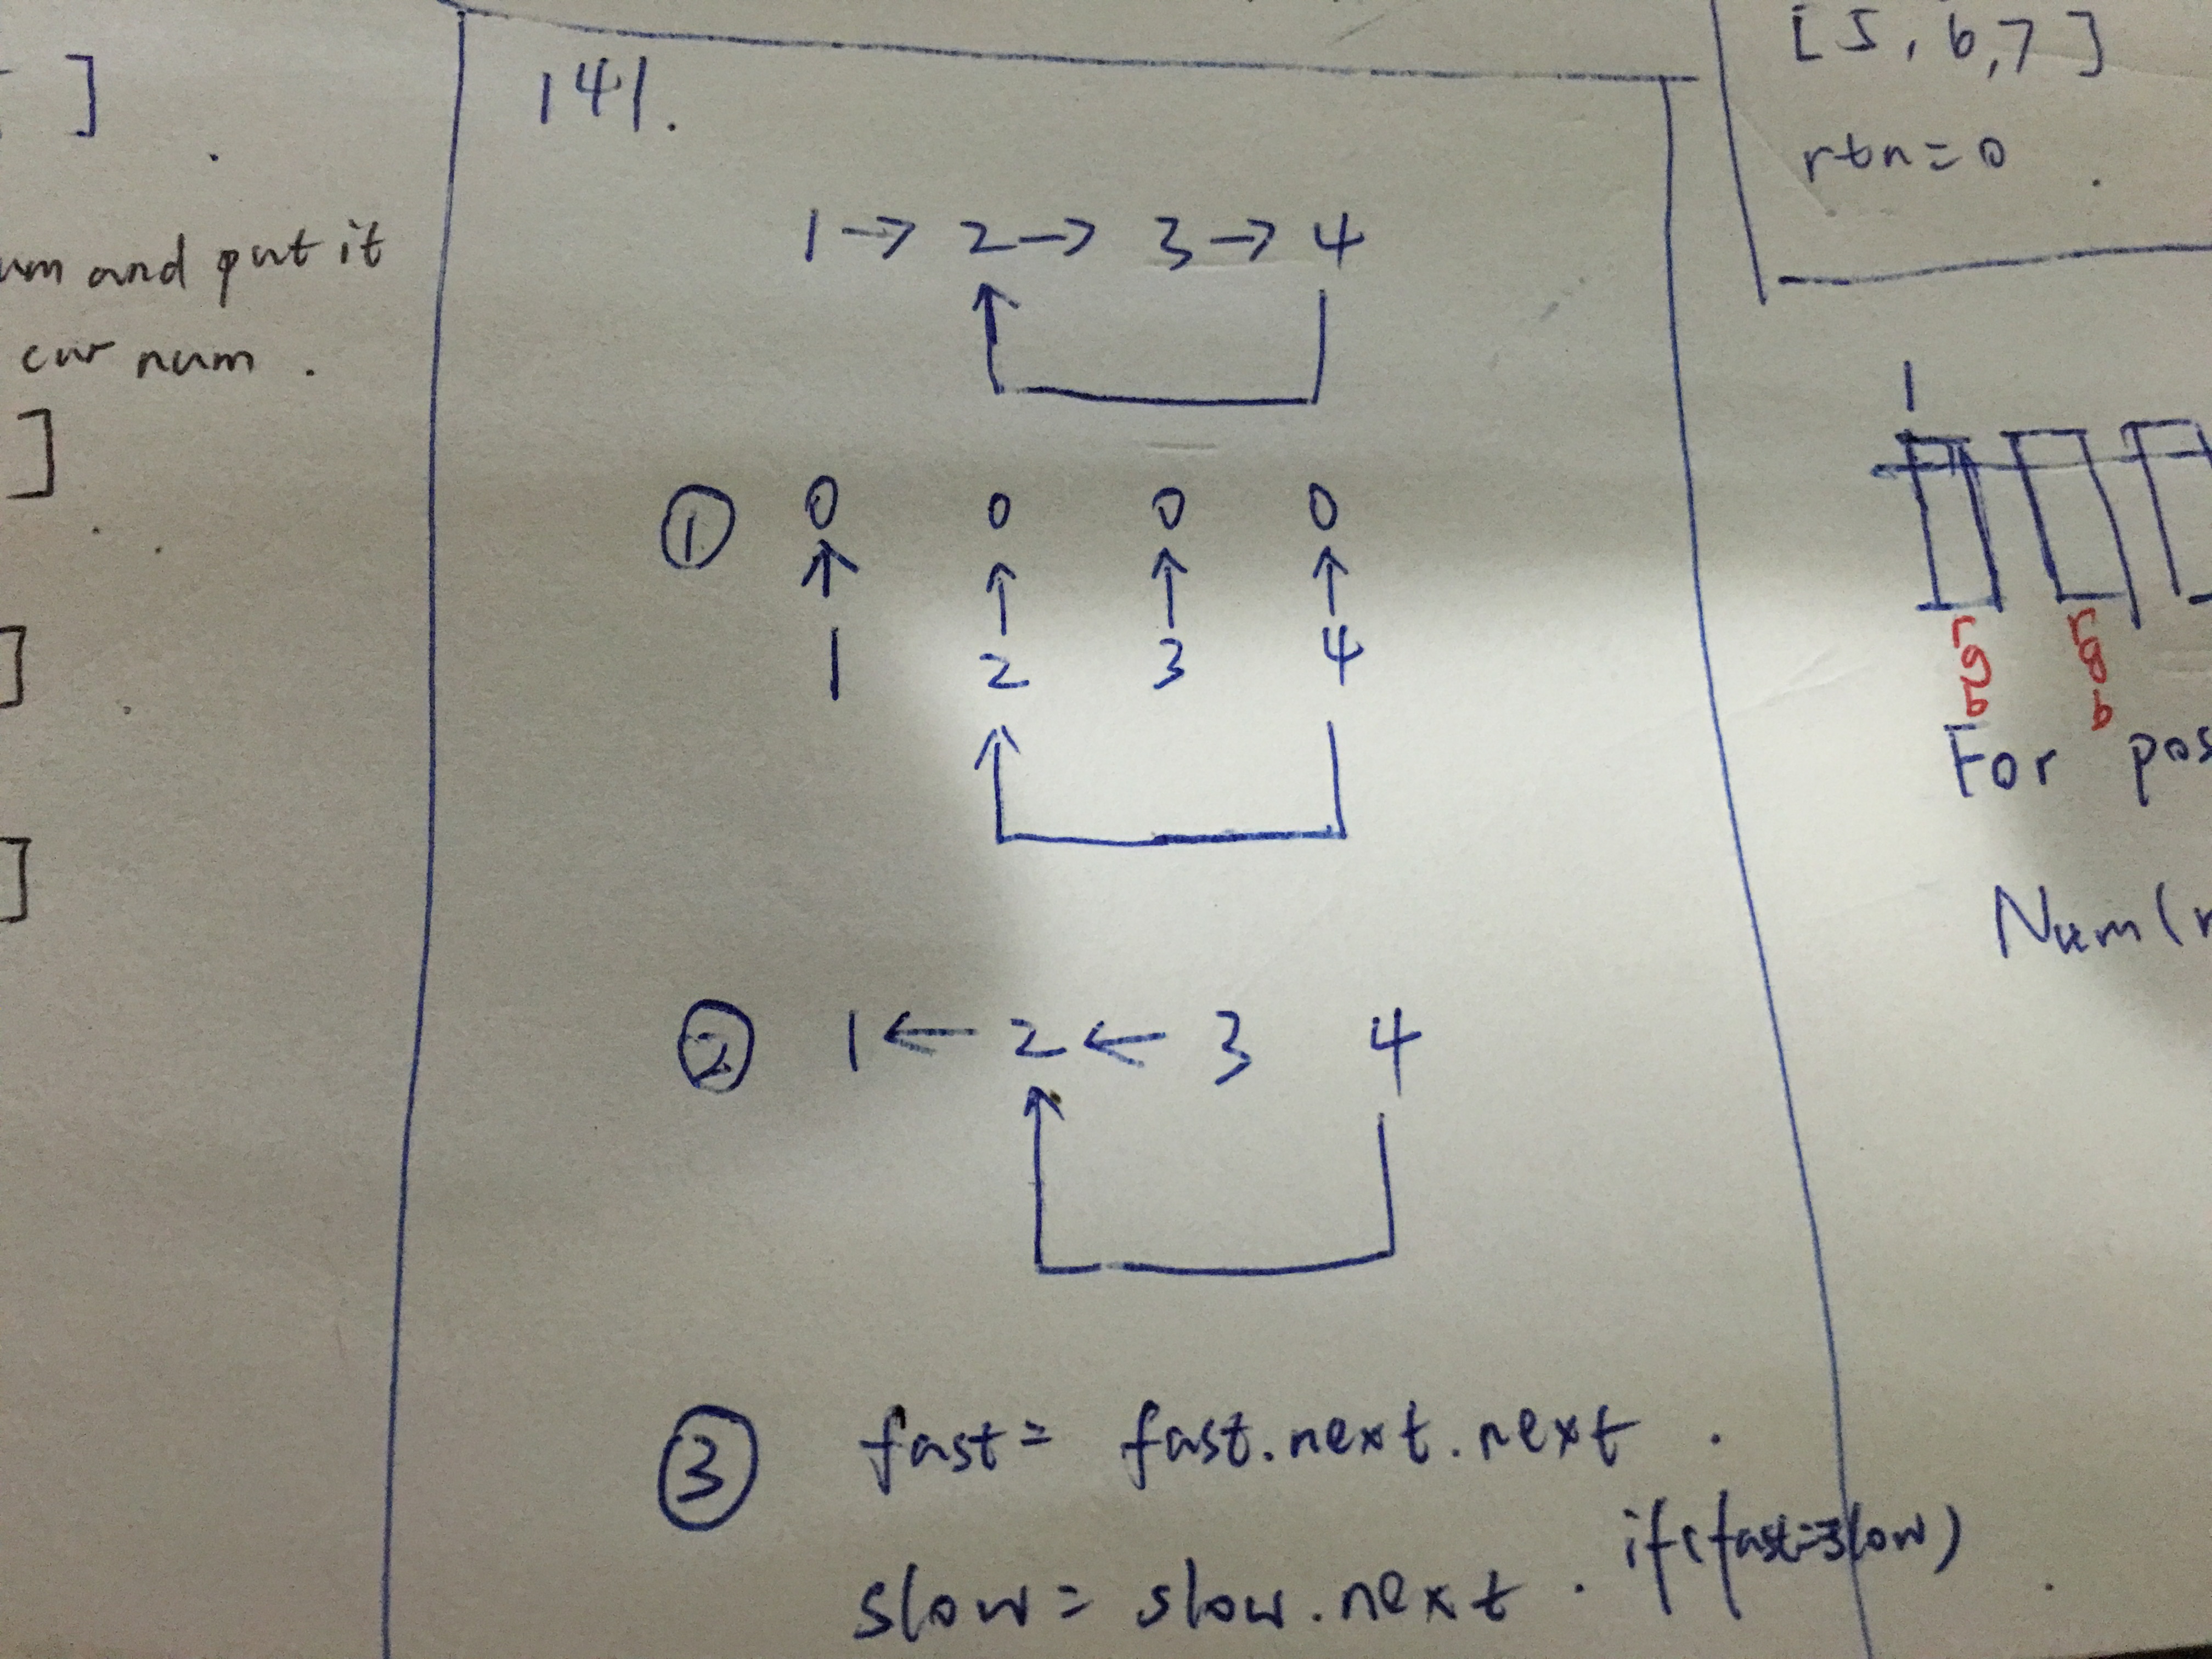 ]
um and put it
cur num .
]
]
]
141.
1 → 2 → 3 → 4
① 0 0 0 0
1 2 3 4
② 1 ← 2 ← 3 4
③ fast = fast.next.next .
slow = slow.next . if(fast=slow)
[5,6,7]
rtn=0
1
rgb rgb
For pos
Num(